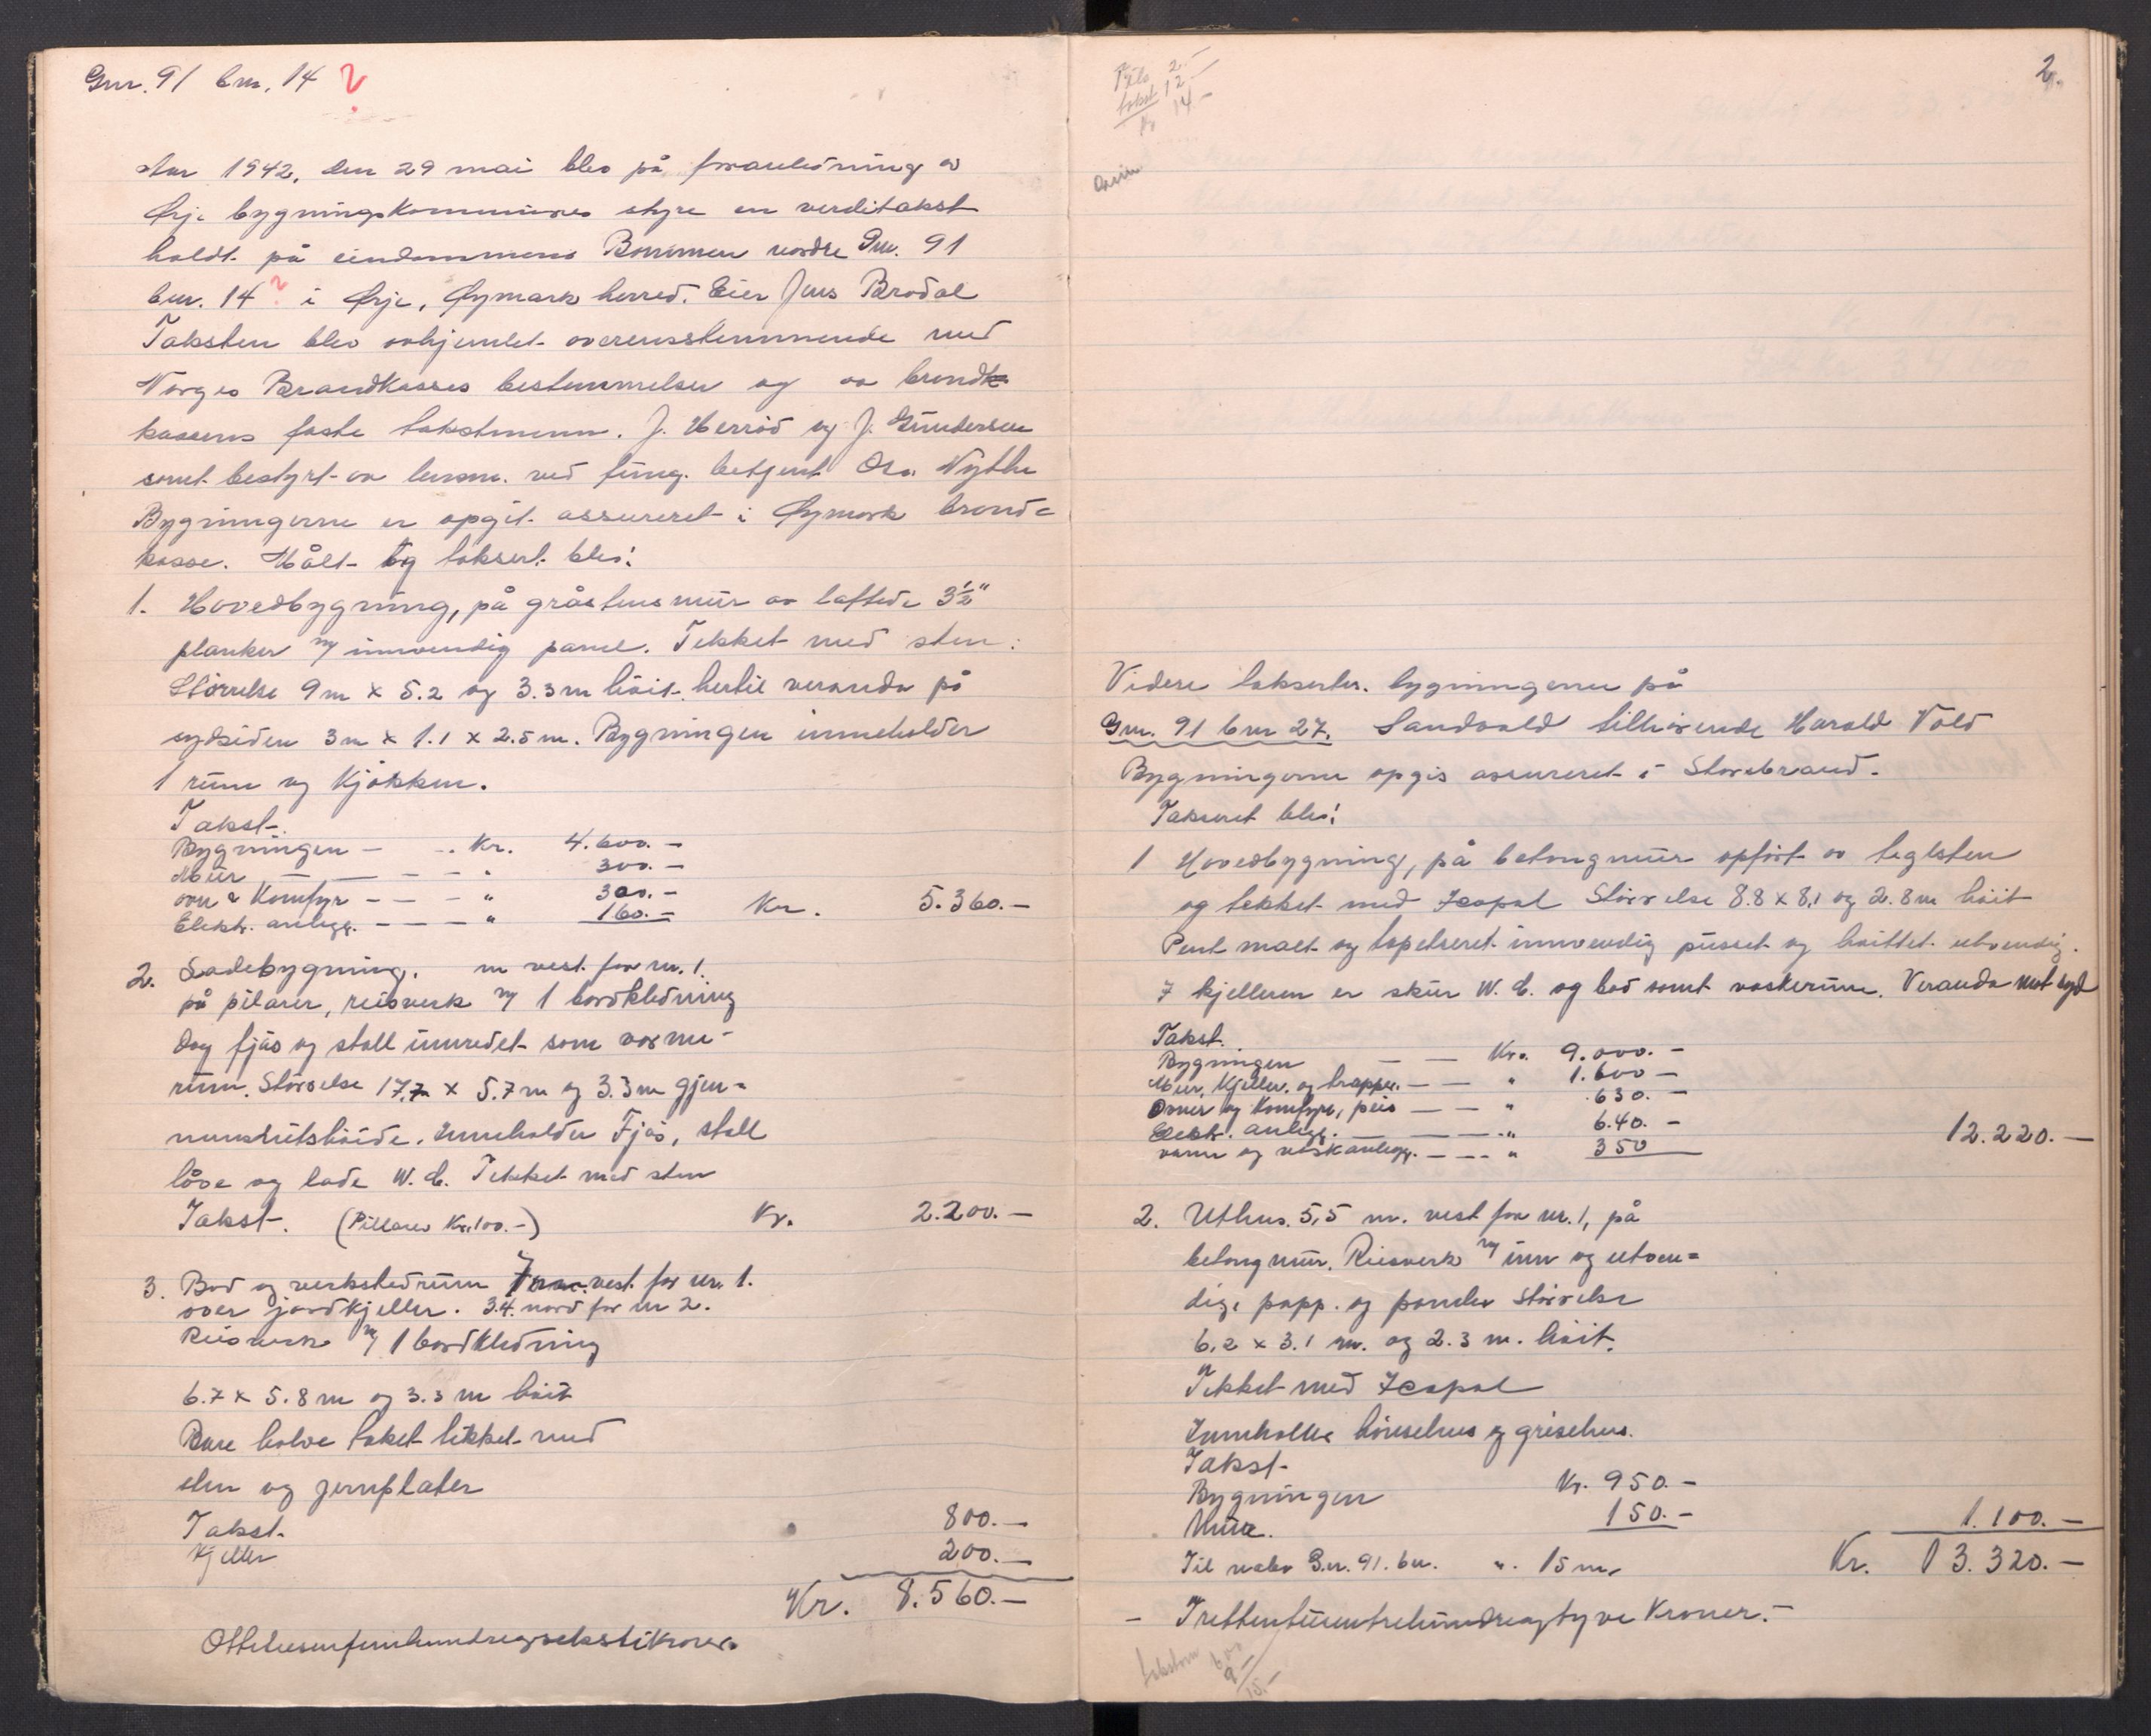 Gnr. 91 bnr. 14 ?
Aar 1942, den 29 mai blev på foranledning av
Ørje bygningskommunes styre en verditakst
holdt på eiendommens Bommen nordre Gnr. 91
bnr. 14 ? i Ørje, Øymark herred. Eier Jens Brodal
Taksten blev avhjemlet overensstemmende med
Norges Brandkasses bestemmelser og av brandk
kassens faste takstmenn. J. Herröd og J. Gundersen
samt bestyrt av lensm. ved fung. betjent Nythe
Bygningerne er opgit assureret i Øymark brand=
kasse. Målt og taksert blev:
1. Hovedbygning, på gråstensmur av laftede 3½"
planker m/ innvendig panel. Tekket med sten.
Störrelse 9 m x 5.2 og 3.3 m höit. hertil veranda på
sydsiden 3 m x 1.1 x 2.5 m. Bygningen inneholder
1 rum og Kjökken.
Takst.
Bygningen — .. Kr. 4.600.—
Mur — — — — " 300.—
ovn & Komfyr — — — " 300.—
Elektr. anlegg. — — — " 160.— Kr. 5.360.—
2. Ladebygning. m vest for nr. 1.
på pilarer, reisverk m/ 1 bordkledning
Dog fjös og stall innredet som varme-
rum. Störrelse 17,7 x 5.7 m og 3.3 m gjen=
nemsnitshöide. Inneholder Fjös, stall
låve og lade W.C. Tekket med sten
Takst. (Pillarer Kr. 100.—) Kr. 2.200.—
3. Bod og verkstedrum 7 vest for nr. 1.
over jordkjeller. 3.4. nord for nr 2.
Reisverk m/ 1 bordkledning
6.7 x 5.8 m og 3.3 m höit
Bare halve taket tekket med
sten og jernplater
Takst. 800.—
Kjeller 200.—
Kr. 8.560.—
Ottetusenfemhundreogsekstikroner.
2.
2.—
takst 12.—
Kr 14.—
Videre taksertes bygningerne på
Gnr. 91 bnr 27. Sandvold tilhörende Harald Vold
Bygningerne opgis assureret i Storebrand.
Takseret blev:
1 Hovedbygning, på betongmur opfört av teglsten
og tekket med Icopal Störrelse 8.8 x 8,1 og 2.8 m höit
Pent malt og tapetseret innvendig pusset og hvittet utvendig.
I kjelleren er skur W.C. og bod samt vaskerum. Veranda mot syd
Takst.
Bygningen — — Kr. 9.000.—
Mur, Kjeller. og trapper. — — " 1.600 —
Ovner og Komfyr, peis — — " 630.—
Elektr. anlegg. — — — " 640.—
vann og vaskanlegg. — — " 350 12.220.—
2. Uthus. 5,5 m. vest for nr. 1, på
betongmur. Reisverk m/ inn og utven=
dig, papp. og panelv Störrelse
6,2 x 3.1 m. og 2.3 m. höit.
Tekket med Icopal
Innholder hönsehus og grisehus.
Takst.
Bygningen Kr. 950.—
Mur. 150.— 1.100.—
Til nabo Gnr. 91. bn. ". 15 m. Kr. 13.320.—
— Trettentusentrehundreogtyve Kroner.—